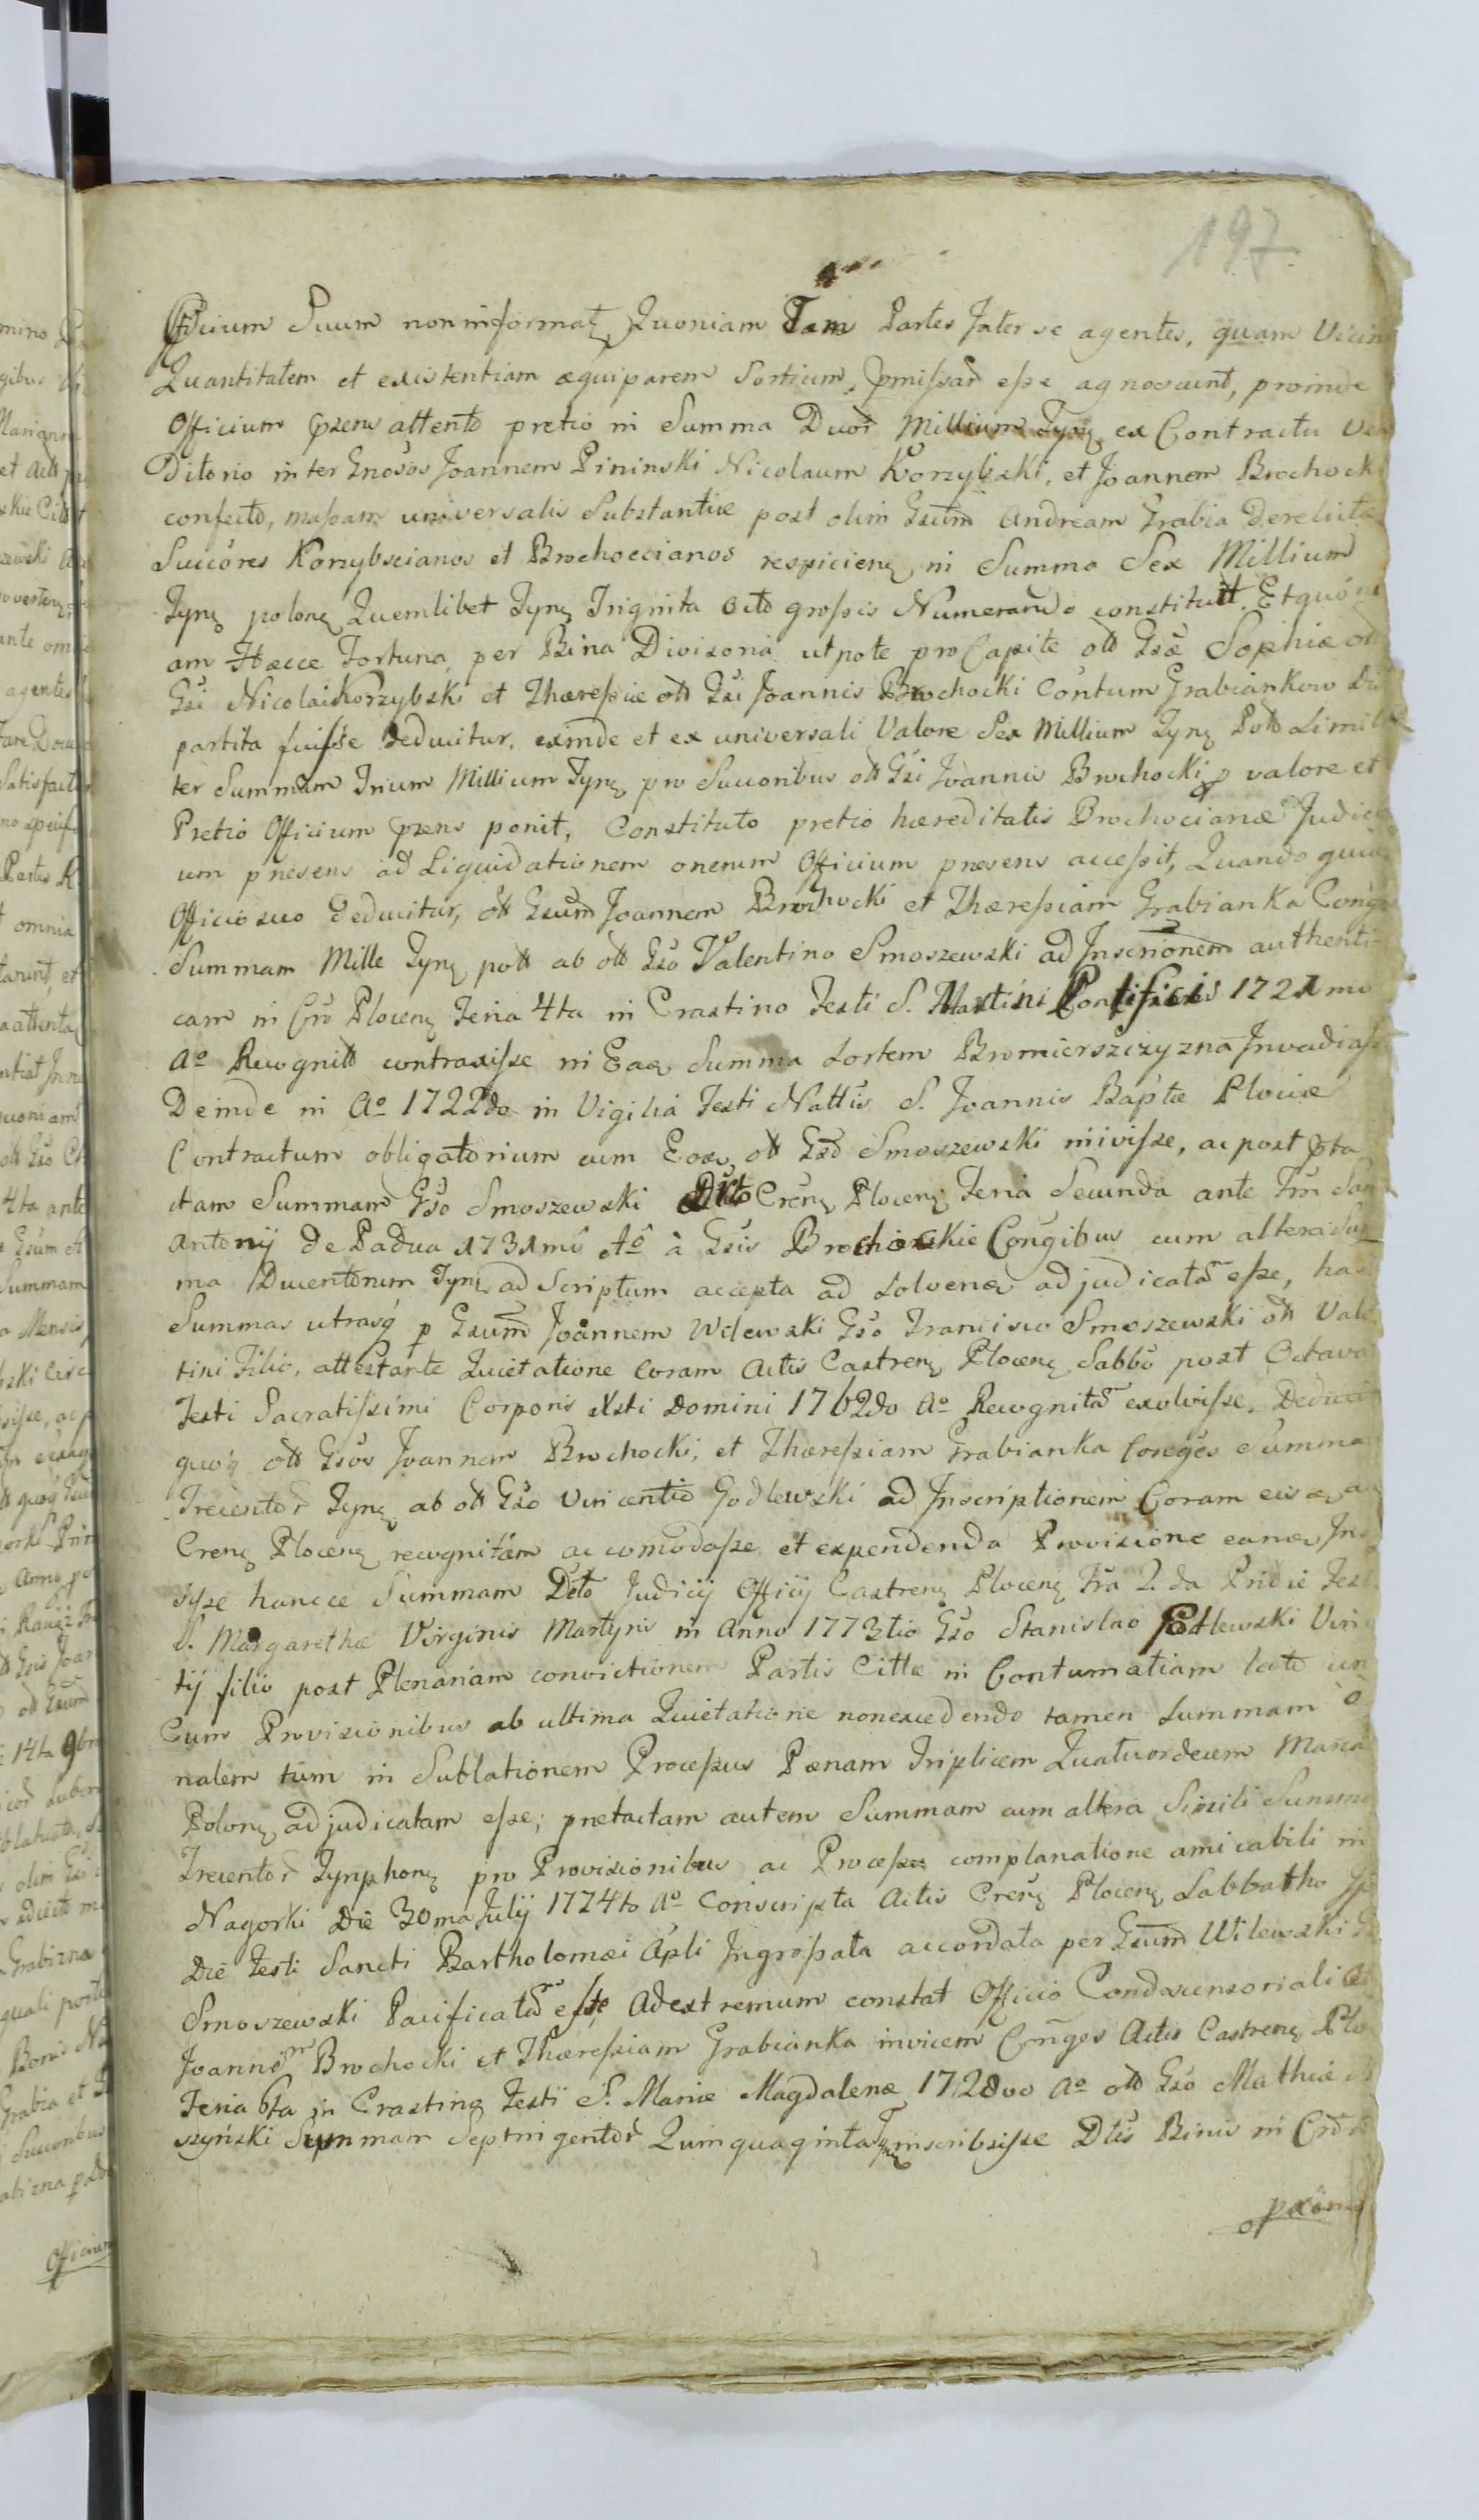 197
Officium Suum non informat, Quoniam Tam Partes Inter se agentes, quam Vicin
Quantitatem et existentiam æquiparem Sortium, pmißar eße agnoscunt, proinde
Officium pzens attento pretio in Summa Duor Millium Tynz ex Contractu Ven
Ditorio inter Gnosos Joannem Pininski Nicolaum Korzybski, et Joannem Brochocki
confecto, maßam universalis Substantiæ post olim Gsum Andream Grabia Derelictæ
Succores Korzybscianos et Brochoccianos respicienz in Summa Sex Millium
Tynz polonz Quemlibet Tynz Triginta octo großis Numerando constituit. Et quóni
am Hæcce Fortuna, per Bina Divisoria, utpote pro Capite ott Gsæ Sophiæ ott
Gsi Nicolai Korzybski et Thæreßiæ ott Gsi Joannis Brochocki Contum Grabiankow Di
partita fuiße deducitur, exinde et ex universali Valore Sex Millium Tynz Pott Simili
ter Summam Trium Millium Tynz pro Succoribus ott Gsi Joannis Brochocki p valore et
Pretio Officium pzens ponit, Constituto pretio hæreditatis Brochocianæ Judici
um præsens ad Liquidationem onerum Officium præsens acceßit, Quando quidem
Officio suo deducitur, ott Gsum Joannem Brochocki et Thæreßiam Grabianka Conges
Summam Mille Tynz pott ab ott Gso Valentino Smoszewski ad Inscrionem authenti
cam in Cro Plocenz Feria 4ta in Crastino Festi S. Martini Pontificis 1721mo
Ao Recognitt contraxiße in Eaæ Summa Sortem Bromierszizyzna Invadiaße
Deinde in Ao 1722do in Vigilia Festi Nattis S. Joannis Baptæ Plociæ
Contractum obligatorium cum Eoæ ott Gso Smoszewski iniviße, ac post pta
ctam Summam Gso Smoszewski Dcto Crenz Plocenz Feria Secunda ante Fm San
Antonij de Padua 1731mo Ao à Gsis Brochockie Congibus cum altera Sum
ma Ducentorum Tynz ad Scriptum accepta ad Solvenæ adjudicatã eße, has
Summas utrasq p Gsum Joannem Wilewski Gso Francisco Smoszewski ott Valen
tini Filio, attestante Quietatione coram Actis Castrenz Plocenz Sabbo post Octava
Festi Sacratißimi Corporis Xsti Domini 1762do Ao Recognitã exolviße, Deduci
quoq ott Gsos Joannem Brochocki, et Thæreßiam Grabianka Conges Summa
Trecentor Tynz ab ott Gso Vincentio Godlewski ad Inscriptionem Coram eisæ
Crenz Plocenz recognitam accomodaße, et expendenda Provisione eanæ Ins
siße hancce Summam Dcto Judicij Officij Castrenz Plocenz Fra 2da Pridie Fest
S. Margarethæ Virginis Martyris in Anno 1773tio Gso Stanislao Godlewski Vin
tij filio post Plenariam convictionem Partis Cittæ in Contumatiam lato un
Cum Provisionibus ab ultima Quietatione nonexcedendo tamen Summam
nalem tum in Sublationem Proceßus Pænam Triplicem Quatuordecem Marca
Polonz adjudicatam eße; prætactam autem Summam cum altera Simili Summa
Trecentor Tynphonz pro Provisionibus ac Proceßu complanatione amicabili in
Nagorki Die 30ma Julij 1774to Ao Conscripta Actis Crenz Plocenz Sabbatho
Die Festi Sancti Bartholomæi Apli Ingroßata accordata per Gsum Wilewski
Smoszewski Pacificatã eße, Adextremum constat Officio Condescensoriali
Joannem Brochocki et Thæreßiam Grabianka invicem Conges Actis Castrenz Plo
Feria 6ta in Crastino Festi S. Mariæ Magdalenæ 1728vo Ao ott Gso Mathiæ
szyński Summam Septingentor Quinquaginta Tynz inscribsiße Dtis Binis in Crd
pxima